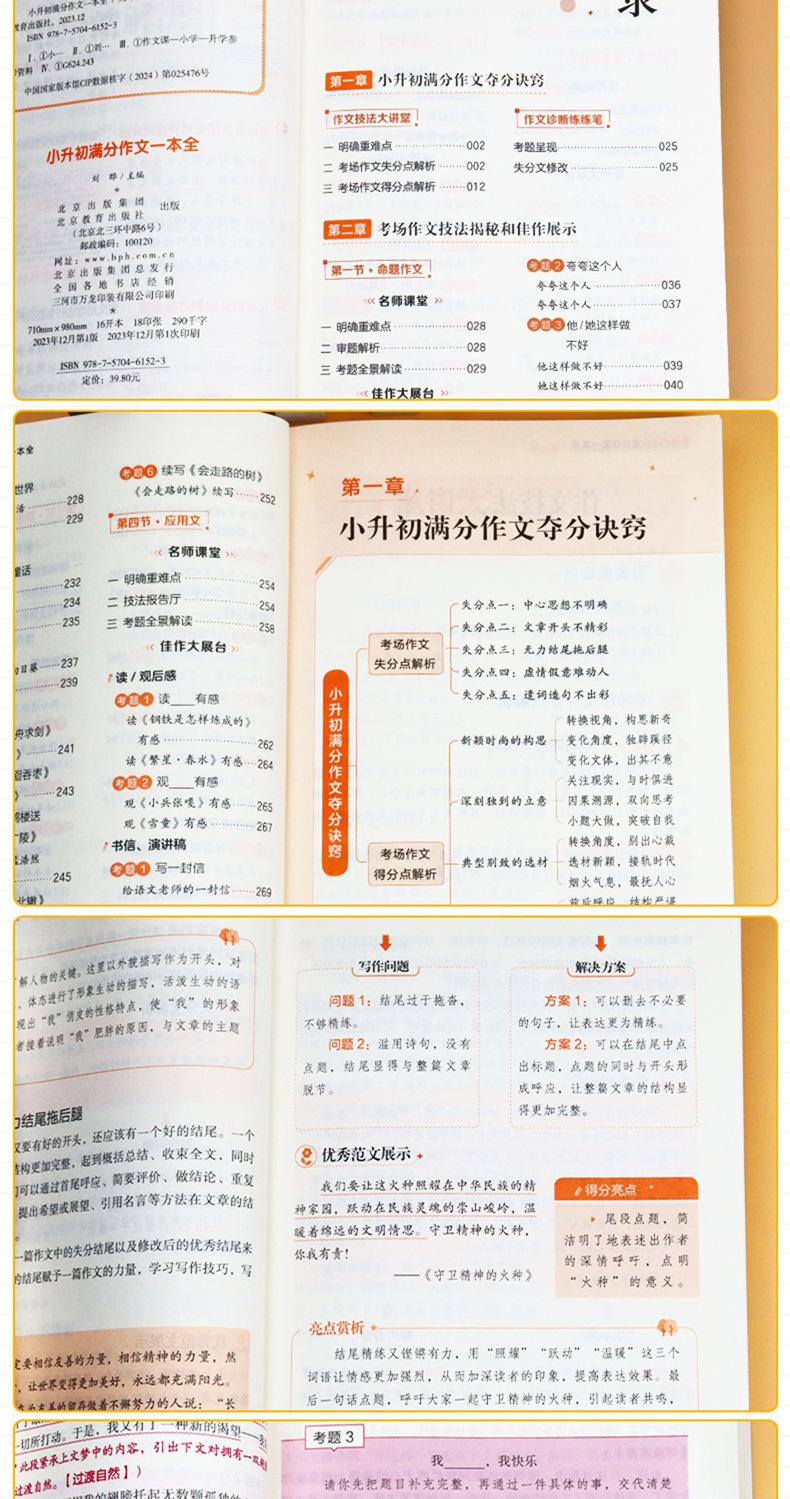 小升初满分作文一本全
教育出版社, 2023.12
ISBN 978-7-5704-6152-3
Ⅰ. ①小… Ⅱ. ①刘… Ⅲ. ①作文课—小学—升学参
资料 Ⅳ. ①G624.243
中国国家版本馆CIP数据核字（2024）第025476号
小升初满分作文一本全
刘 晔 / 主编
★
北京出版集团
北京教育出版社
出版
（北京北三环中路6号）
邮政编码：100120
网址：www.bph.com.cn
北京出版集团总发行
全国各地书店经销
三河市万龙印装有限公司印刷
★
710mm×980mm 16开本 18印张 290千字
2023年12月第1版 2023年12月第1次印刷
ISBN 978-7-5704-6152-3
定价：39.80元
录
第一章 小升初满分作文夺分诀窍
作文技法大讲堂
一 明确重难点 002
二 考场作文失分点解析 002
三 考场作文得分点解析 012
作文诊断练练笔
考题呈现 025
失分文修改 025
第二章 考场作文技法揭秘和佳作展示
第一节·命题作文
名师课堂
一 明确重难点 028
二 审题解析 028
三 考题全景解读 029
佳作大展台
考题2 夸夸这个人
夸夸这个人 036
夸夸这个人 037
考题3 他/她这样做
不好
他这样做不好 039
她这样做不好 040
本全
世界
活 228
229
童话
232
234
235
向日葵 237
239
舟求剑》
》 241
吞枣》
》 243
鹤楼送
广陵》
孟浩然
245
考题6 续写《会走路的树》
《会走路的树》续写 252
第四节·应用文
名师课堂
一 明确重难点 254
二 技法报告厅 254
三 考题全景解读 258
佳作大展台
读/观后感
考题1 读____有感
读《钢铁是怎样炼成的》
有感 262
读《繁星·春水》有感 264
考题2 观____有感
观《小兵张嘎》有感 265
观《雪童》有感 267
书信、演讲稿
考题1 写一封信
给语文老师的一封信 269
第一章
小升初满分作文夺分诀窍
小升初满分作文夺分诀窍
考场作文
失分点解析
失分点一：中心思想不明确
失分点二：文章开头不精彩
失分点三：无力结尾拖后腿
失分点四：虚情假意难动人
失分点五：遣词造句不出彩
考场作文
得分点解析
新颖时尚的构思
转换视角，构思新奇
变化角度，独辟蹊径
变化文体，出其不意
深刻独到的立意
关注现实，与时俱进
因果溯源，双向思考
小题大做，突破自我
典型别致的选材
转换角度，别出心裁
选材新颖，接轨时代
烟火气息，最抚人心
前后呼应，结构严谨
了解人物的关键。这里以外貌描写作为开头，对
、体态进行了形象生动的描写，活泼生动的语
现出“我”俏皮的性格特点，使“我”的形象
者接着说明“我”肥胖的原因，与文章的主题
力结尾拖后腿
又要有好的开头，还应该有一个好的结尾。一个
结构更加完整，起到概括总结、收束全文，同时
们可以通过首尾呼应、简要评价、做结论、重复
提出希望或展望、引用名言等方法在文章的结
一篇作文中的失分结尾以及修改后的优秀结尾来
的结尾赋予一篇作文的力量，学习写作技巧，写
定要相信友善的力量，相信精神的力量，然
，让世界变得更加美好，永远都充满阳光。
为友善的留存做着不懈努力的人说：“长
写作问题
问题1：结尾过于拖沓，
不够精练。
问题2：滥用诗句，没有
点题，结尾显得与整篇文章
脱节。
解决方案
方案1：可以删去不必要
的句子，让表达更为精练。
方案2：可以在结尾中点
出标题，点题的同时与开头形
成呼应，让整篇文章的结构显
得更加完整。
优秀范文展示
我们要让这火种照耀在中华民族的精
神家园，跃动在民族灵魂的崇山峻岭，温
暖着绵远的文明情思。守卫精神的火种，
你我有责！
——《守卫精神的火种》
得分亮点
尾段点题，简
洁明了地表述出作者
的深情呼吁，点明
“火种”的意义。
亮点赏析
结尾精练又铿锵有力，用“照耀”“跃动”“温暖”这三个
词语让情感更加强烈，从而加深读者的印象，提高表达效果。最
后一句话点题，呼吁大家一起守卫精神的火种，引起读者共鸣，
一切所打动。于是，我又有了一种新的渴望——
此段紧承上文梦中的内容，引出下文对拥有一双
过渡自然。【过渡自然】）
考题3
我____，我快乐
请你先把题目补充完整，再通过一件具体的事，交代清楚